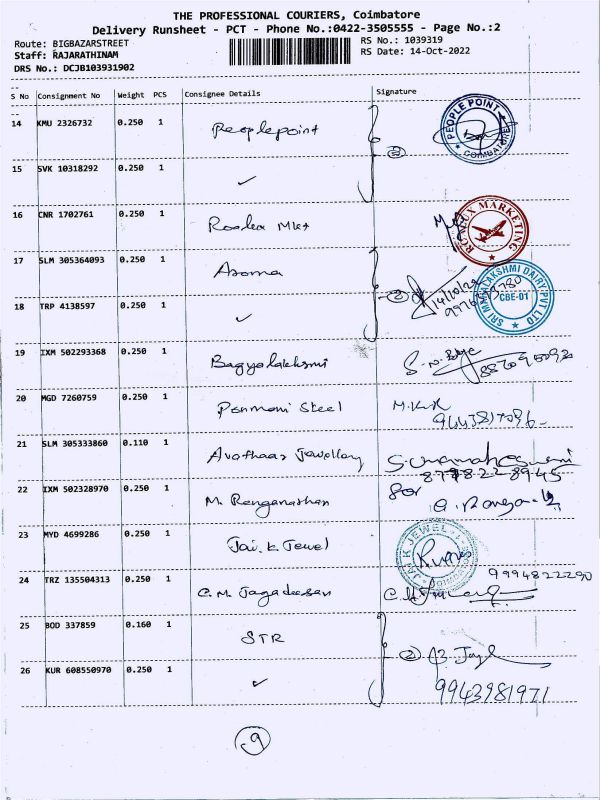 THE PROFESSIONAL COURIERS, Coimbatore
Delivery Runsheet - PCT - Phone No.:0422-3505555 - Page No.:2
Route: BIGBAZARSTREET
RS No.: 1039319
Staff: RAJARATHINAM
RS Date: 14-Oct-2022
DRS No.: DCJB103931902
S No Consignment No Weight PCS Consignee Details Signature
14 KMU 2326732 0.250 1 Peoplepoint
PEOPLE POINT COIMBATORE
15 SVK 10318292 0.250 1 ✓
②
16 CNR 1702761 0.250 1 Roolux Mkt
ROOLUX MARKETING
17 SLM 305364093 0.250 1 Aroma
18 TRP 4138597 0.250 1 ✓
② 14/10/22
SRI MAHALAKSHMI DAIRY PVT LTD CBE-01
19 IXM 502293368 0.250 1 Bagyalakshmi
20 MGD 7260759 0.250 1 Ponmani Steel
21 SLM 305333860 0.110 1 Avathaar Jewellary
22 IXM 502328970 0.250 1 M. Renganathan
for
23 MYD 4699286 0.250 1 Jai.K Jewel
JAI K JEWEL
24 TRZ 135504313 0.250 1 C.M. Jagadeesan
9994822290
25 BOD 337859 0.160 1 STR
26 KUR 608550970 0.250 1 ✓
②
9943981971
9